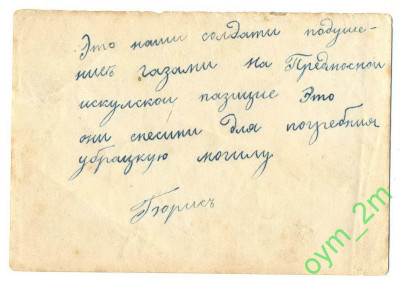 Это наши солдати подуше-
нисъ газами на Предмосной
искулской пазицие Это
они снесини для погребния
убрацкую могилу
Тюрисъ
oym_2m